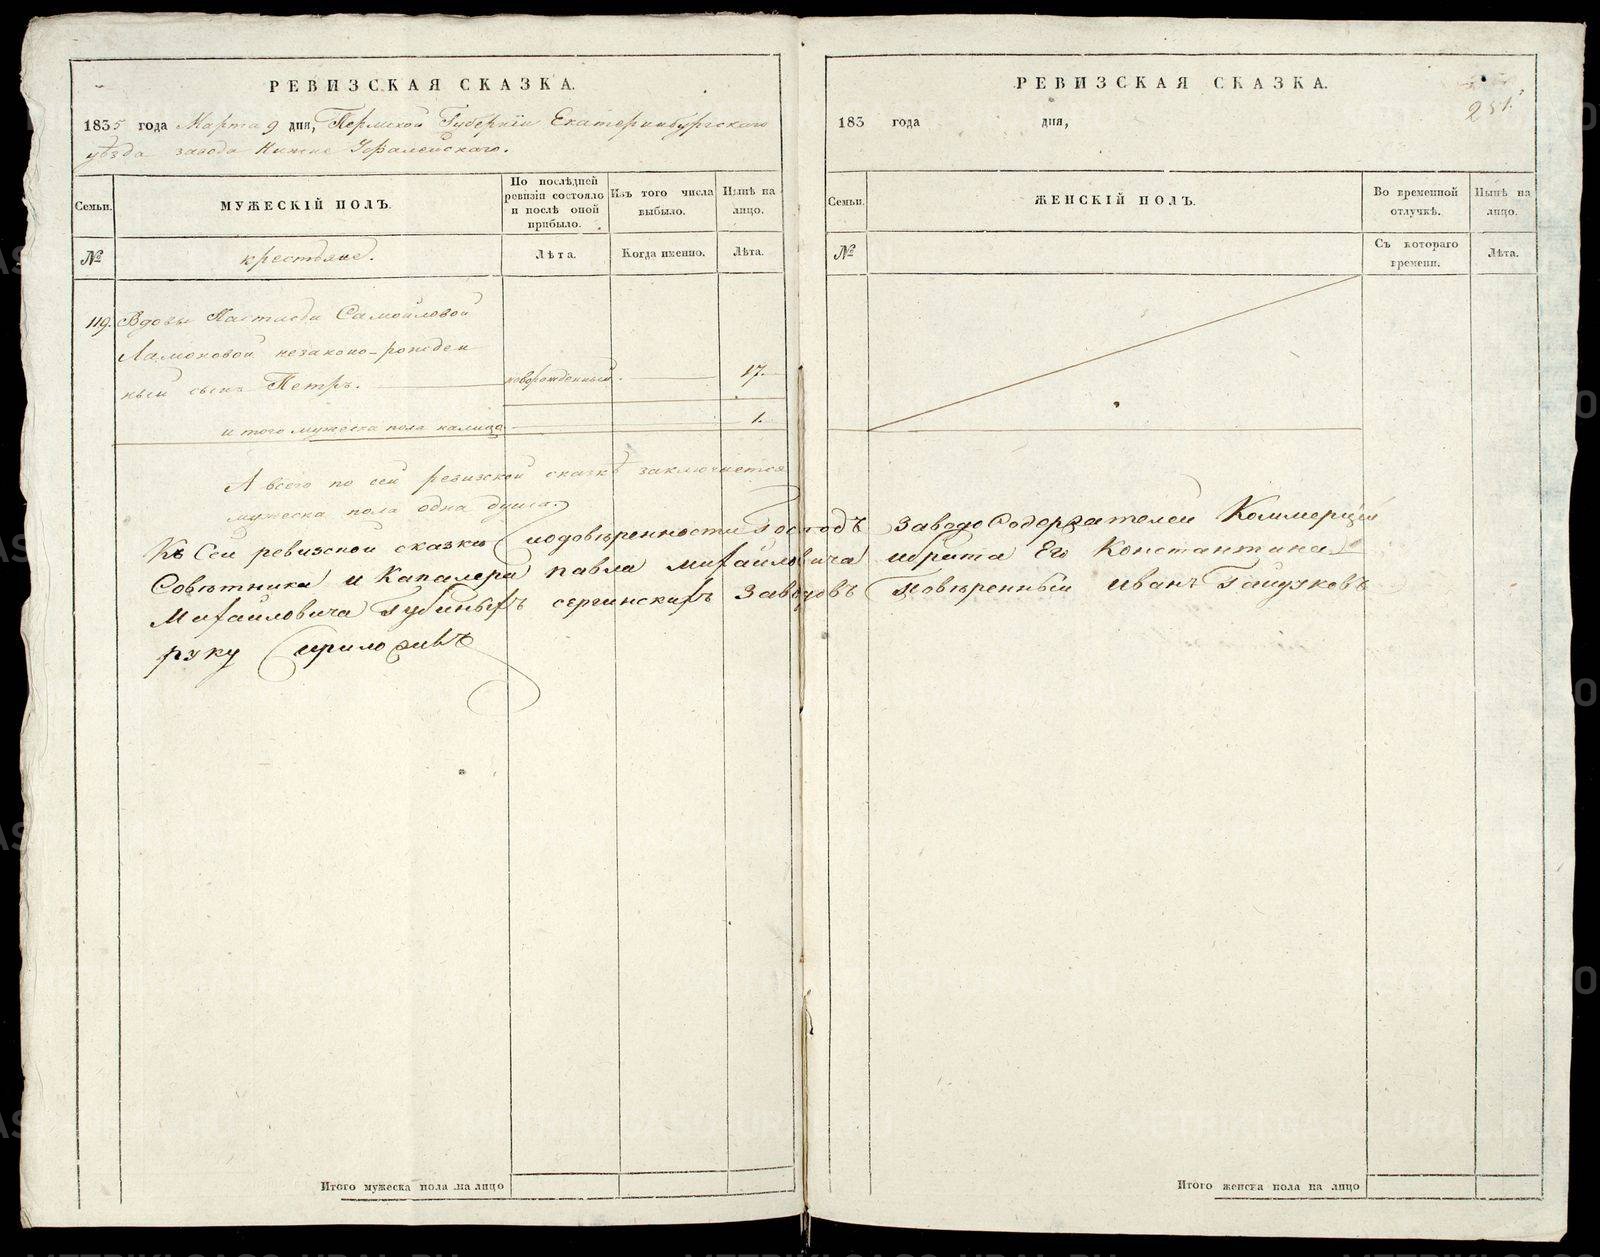 РЕВИЗСКАЯ СКАЗКА.
1835 года Марта 9 дня, Пермской Губернии Екатеринбургскаго
уѣзда завода Нижне Уфалейскаго.
Семьи.
МУЖЕСКІЙ ПОЛЪ.
По послѣдней ревизіи состояло и послѣ оной прибыло.
Изъ того числа выбыло.
Нынѣ на лицо.
№
крестьяне.
Лѣта.
Когда именно.
Лѣта.
119. Вдовы Настасьи Самойловой
Ламоновой незаконо-рожден
ный сынъ Петръ. новорожденный. 17.
и того мужеска пола налицо 1.
А всего по сей ревизской сказкѣ заключается
мужеска пола одна душа.
РЕВИЗСКАЯ СКАЗКА.
251.
183 года дня,
Семьи.
ЖЕНСКІЙ ПОЛЪ.
Во временной отлучкѣ.
Нынѣ на лицо.
№
Съ котораго времени.
Лѣта.
Къ Сей ревизской сказки подовѣренности Господъ заводоСодержателей Коммерціи
Совѣтника и Кавалера павла михайловича ибрата Его Константина
Михайловича Губиныхъ сергинскихъ Заводовъ Повѣренный иванъ
руку приложивъ
Итого мужеска пола на лицо
Итого женска пола на лицо
METRIKI.GASO-URAL.RU